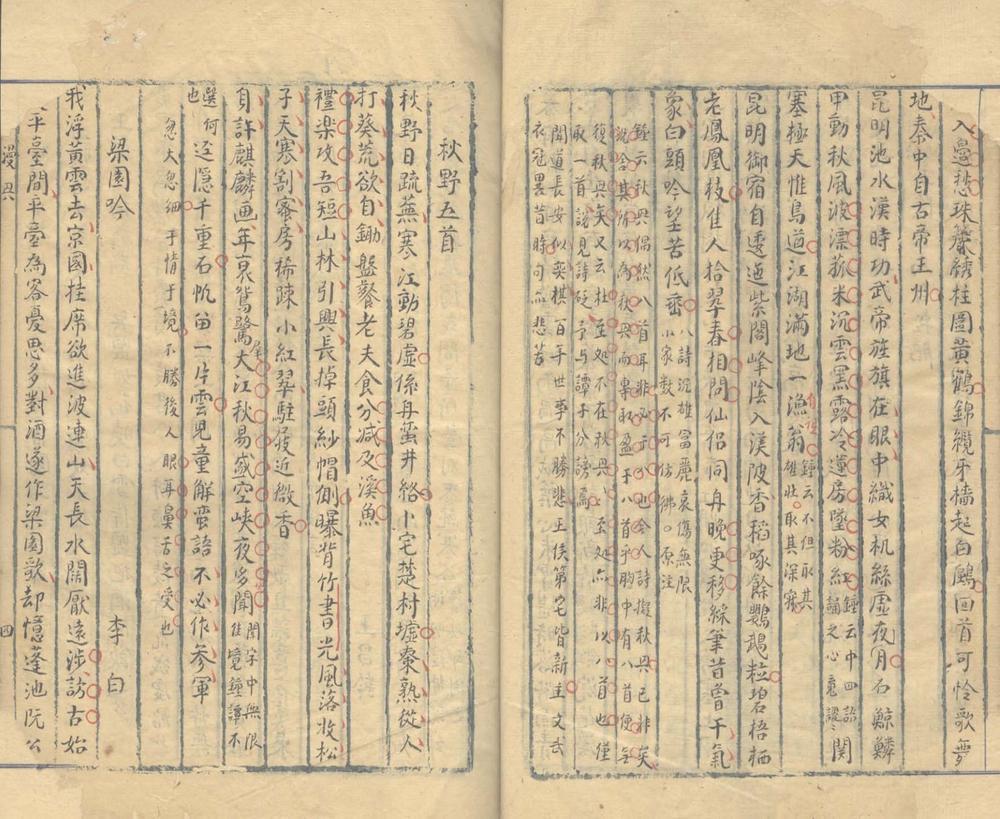 入邊愁珠簾綉柱圍黃鶴錦纜牙檣起白鷗回首可怜歌
地秦中自古帝王州
昆明池水漢時功武帝旌旗在眼中織女机絲虛夜月石鯨鱗
甲動秋風波漂菰米沉雲黑露冷蓮房墜粉紅鍾云中四語誦之心竟謖〻關
塞極天惟鳥道江湖滿地一漁翁鍾云不但取其雄壯取其深寂
昆明御宿自逶迤紫閣峰陰入渼陂香稻啄餘鸚鵡粒碧梧栖
老鳳凰枝佳人拾翠春相問仙侶同舟晚更移綵筆昔曾干氣
象白頭吟望苦低垂八詩沉雄富麗哀傷無限小家數不可彷彿。原注
鍾云秋興偶然八首耳非必于八也今人詩擬秋興已非矣
說含其所以為秋興而專取盈于八首乎胸中有八首便無
復秋興矣又云杜至処不在秋興〻至処亦非以八首也僅
取一首說見詩砭予与譚子分謗焉
聞道長安似奕棋百年世事不勝悲王侯第宅皆新主文武
衣冠異昔時句亦悲苦
秋野五首
秋野日疏蕪寒江動碧虛係舟蛮井絡卜宅楚村墟棗熟從人
打葵荒欲自鋤盤餐老夫食分減及溪魚
禮楽攻吾短山林引興長掉頭紗帽側曝背竹書光風落收松
子天寒割蜜房稀踈小紅翠駐屐近微香
自許麒麟画年哀鴛鷺大江秋易盛空峽夜多聞聞字中無限佳境鍾譚不
選何也逕隱千重石帆留一片雲児童解蛮語不必作參軍
忽大忽細于情于境不勝後人眼耳鼻舌之受也
梁園吟 李白
我浮黃雲去京國挂席欲進波連山天長水闊厭遠涉訪古始
平臺間平臺為客憂思多對酒遂作梁園歌却憶蓬池阮公
四